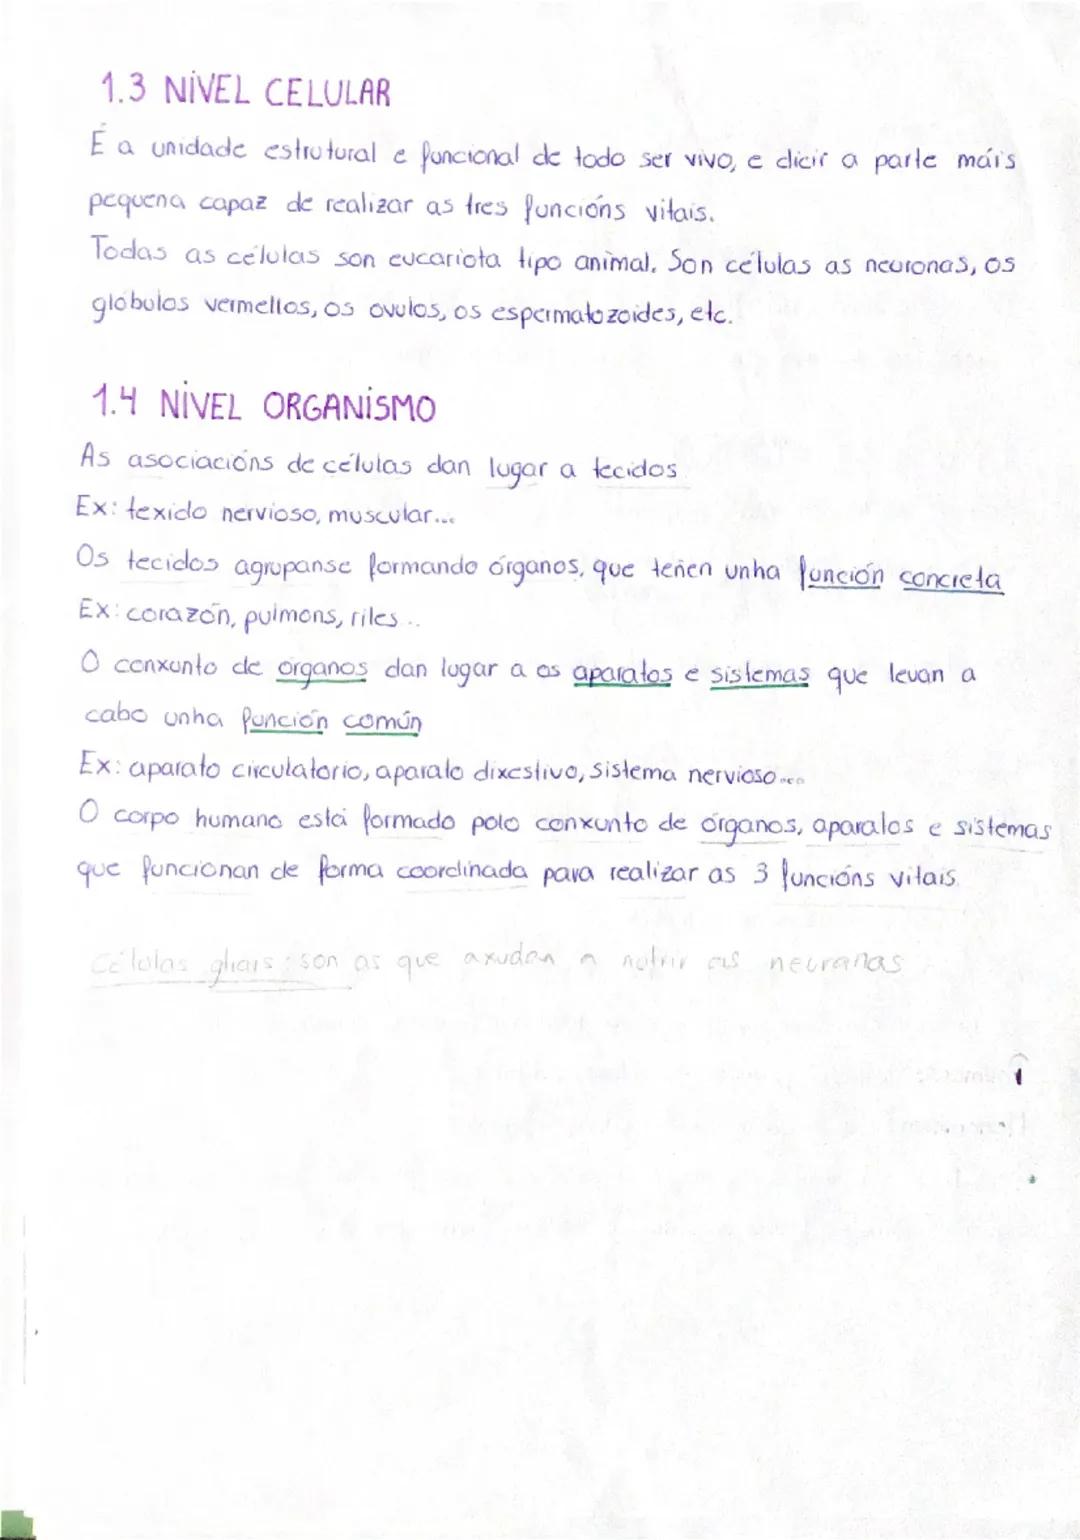 1.3 NIVEL CELULAR
É a unidade estrutural e funcional de todo ser vivo, e dicir a parte máis
pequena capaz de realizar as tres funcións vitais.
Todas as células son eucariota tipo animal. Son células as neuronas, os
glóbulos vermellos, os ovulos, os espermatozoides, etc.
1.4 NIVEL ORGANISMO
As asociacións de células dan lugar a tecidos
Ex: texido nervioso, muscular...
Os tecidos agrupanse formando órganos, que teñen unha función concreta
Ex: corazón, pulmons, riles..
O conxunto de órganos dan lugar a os aparatos e sistemas que levan a
cabo unha función común
Ex: aparato circulatorio, aparato dixestivo, sistema nervioso....
O corpo humano está formado polo conxunto de órganos, aparatos e sistemas
que funcionan de forma coordinada para realizar as 3 funcións vitais.
Células gliais: son as que axudan a notrir as neuranas